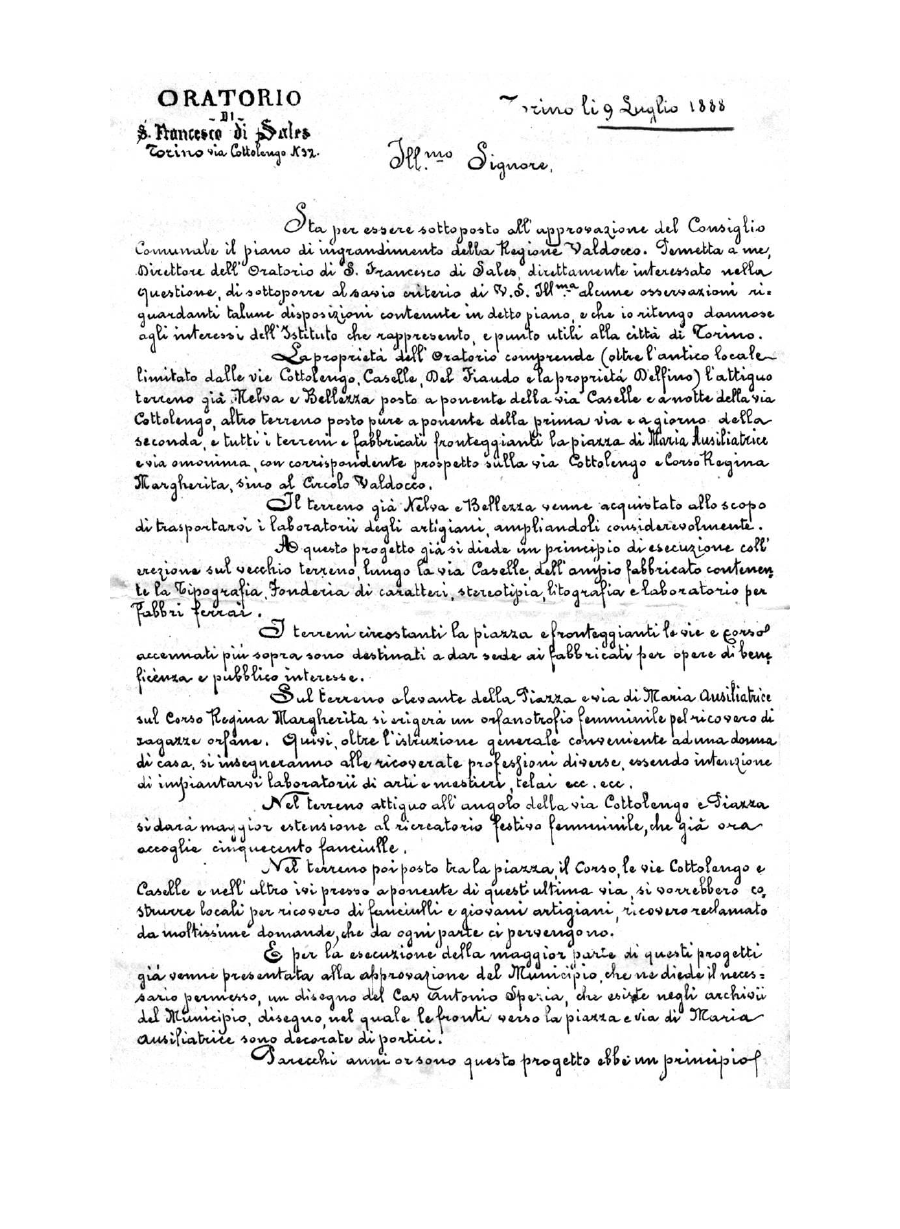 ORATORIO
- DI -
S. Francesco di Sales
Torino via Cottolengo N 32.
Torino li 9 Luglio 1888
Ill.mo Signore,
Sta per essere sottoposto all'approvazione del Consiglio
Comunale il piano di ingrandimento della Regione Valdocco. Permetta a me,
Direttore dell'Oratorio di S. Francesco di Sales, direttamente interessato nella
questione, di sottoporre al savio criterio di V. S. Ill.ma alcune osservazioni ri=
guardanti talune disposizioni contenute in detto piano, e che io ritengo dannose
agli interessi dell'Istituto che rappresento, e punto utili alla città di Torino.
La proprietà dell'Oratorio comprende (oltre l'antico locale
limitato dalle vie Cottolengo, Caselle, Del Fiando e la proprietà Delfino) l'attiguo
terreno già Nelva e Bellezza posto a ponente della via Caselle e a notte della via
Cottolengo, altro terreno posto pure a ponente della prima via e a giorno della
seconda, e tutti i terreni e fabbricati fronteggianti la piazza di Maria Ausiliatrice
e via omonima, con corrispondente prospetto sulla via Cottolengo e Corso Regina
Margherita, sino al Circolo Valdocco.
Il terreno già Nelva e Bellezza venne acquistato allo scopo
di trasportarvi i laboratorii degli artigiani, ampliandoli considerevolmente.
A questo progetto già si diede un principio di esecuzione coll'
erezione sul vecchio terreno, lungo la via Caselle, dell'ampio fabbricato contenen
te la Tipografia, Fonderia di caratteri, stereotipia, litografia e laboratorio per
Fabbri ferrai.
I terreni circostanti la piazza e fronteggianti le vie e corso
accennati più sopra sono destinati a dar sede ai fabbricati per opere di bene
ficenza e pubblico interesse.
Sul terreno a levante della Piazza e via di Maria Ausiliatrice
sul Corso Regina Margherita si erigerà un orfanotrofio femminile pel ricovero di
ragazze orfane. Quivi, oltre l'istruzione generale conveniente ad una donna
di casa, si insegneranno alle ricoverate professioni diverse, essendo intenzione
di impiantarvi laboratorii di arti e mestieri, telai ecc. ecc.
Nel terreno attiguo all'angolo della via Cottolengo e Piazza
si darà maggior estensione al ricreatorio festivo femminile, che già ora
accoglie cinquecento fanciulle.
Nel terreno poi posto tra la piazza, il Corso, le vie Cottolengo e
Caselle e nell'altro ivi presso a ponente di quest'ultima via, si vorrebbero co
strurre locali per ricovero di fanciulli e giovani artigiani, ricovero reclamato
da moltissime domande, che da ogni parte ci pervengono.
E per la esecuzione della maggior parte di questi progetti
già venne presentata alla approvazione del Municipio, che ne diede il neces=
sario permesso, un disegno del Cav Antonio Spezia, che esiste negli archivii
del Municipio, disegno, nel quale le fronti verso la piazza e via di Maria
Ausiliatrice sono decorate di portici.
Parecchi anni or sono questo progetto ebbe un principio